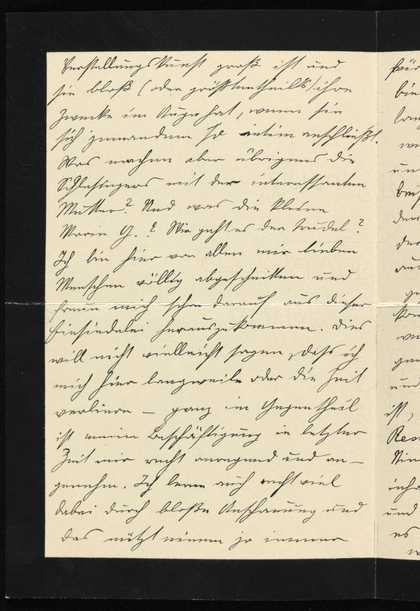 Verstellungskunst groß ist und
sie bloß (oder größtentheils) ihre
Zwecke im Auge hat, wenn sie
sich jemandem so intim anschließt.
Was machen aber übrigens die
Schlesingers mit der interessanten
Mutter? Und was die kleine
Marie G.? Wie geht es der Trudel?
Ich bin hier von allen mir lieben
Menschen völlig abgeschnitten und
freue mich schon darauf aus dieser
Einsiedelei herauszukommen. Dies
will nicht vielleicht sagen, daß ich
mich hier langweile oder die Zeit
verliere – ganz im Gegentheil
ist meine Beschäftigung in letzter
Zeit mir recht anregend und an-
genehm. Ich lerne auch recht viel
dabei durch bloße Anschauung und
das nützt einem ja immer